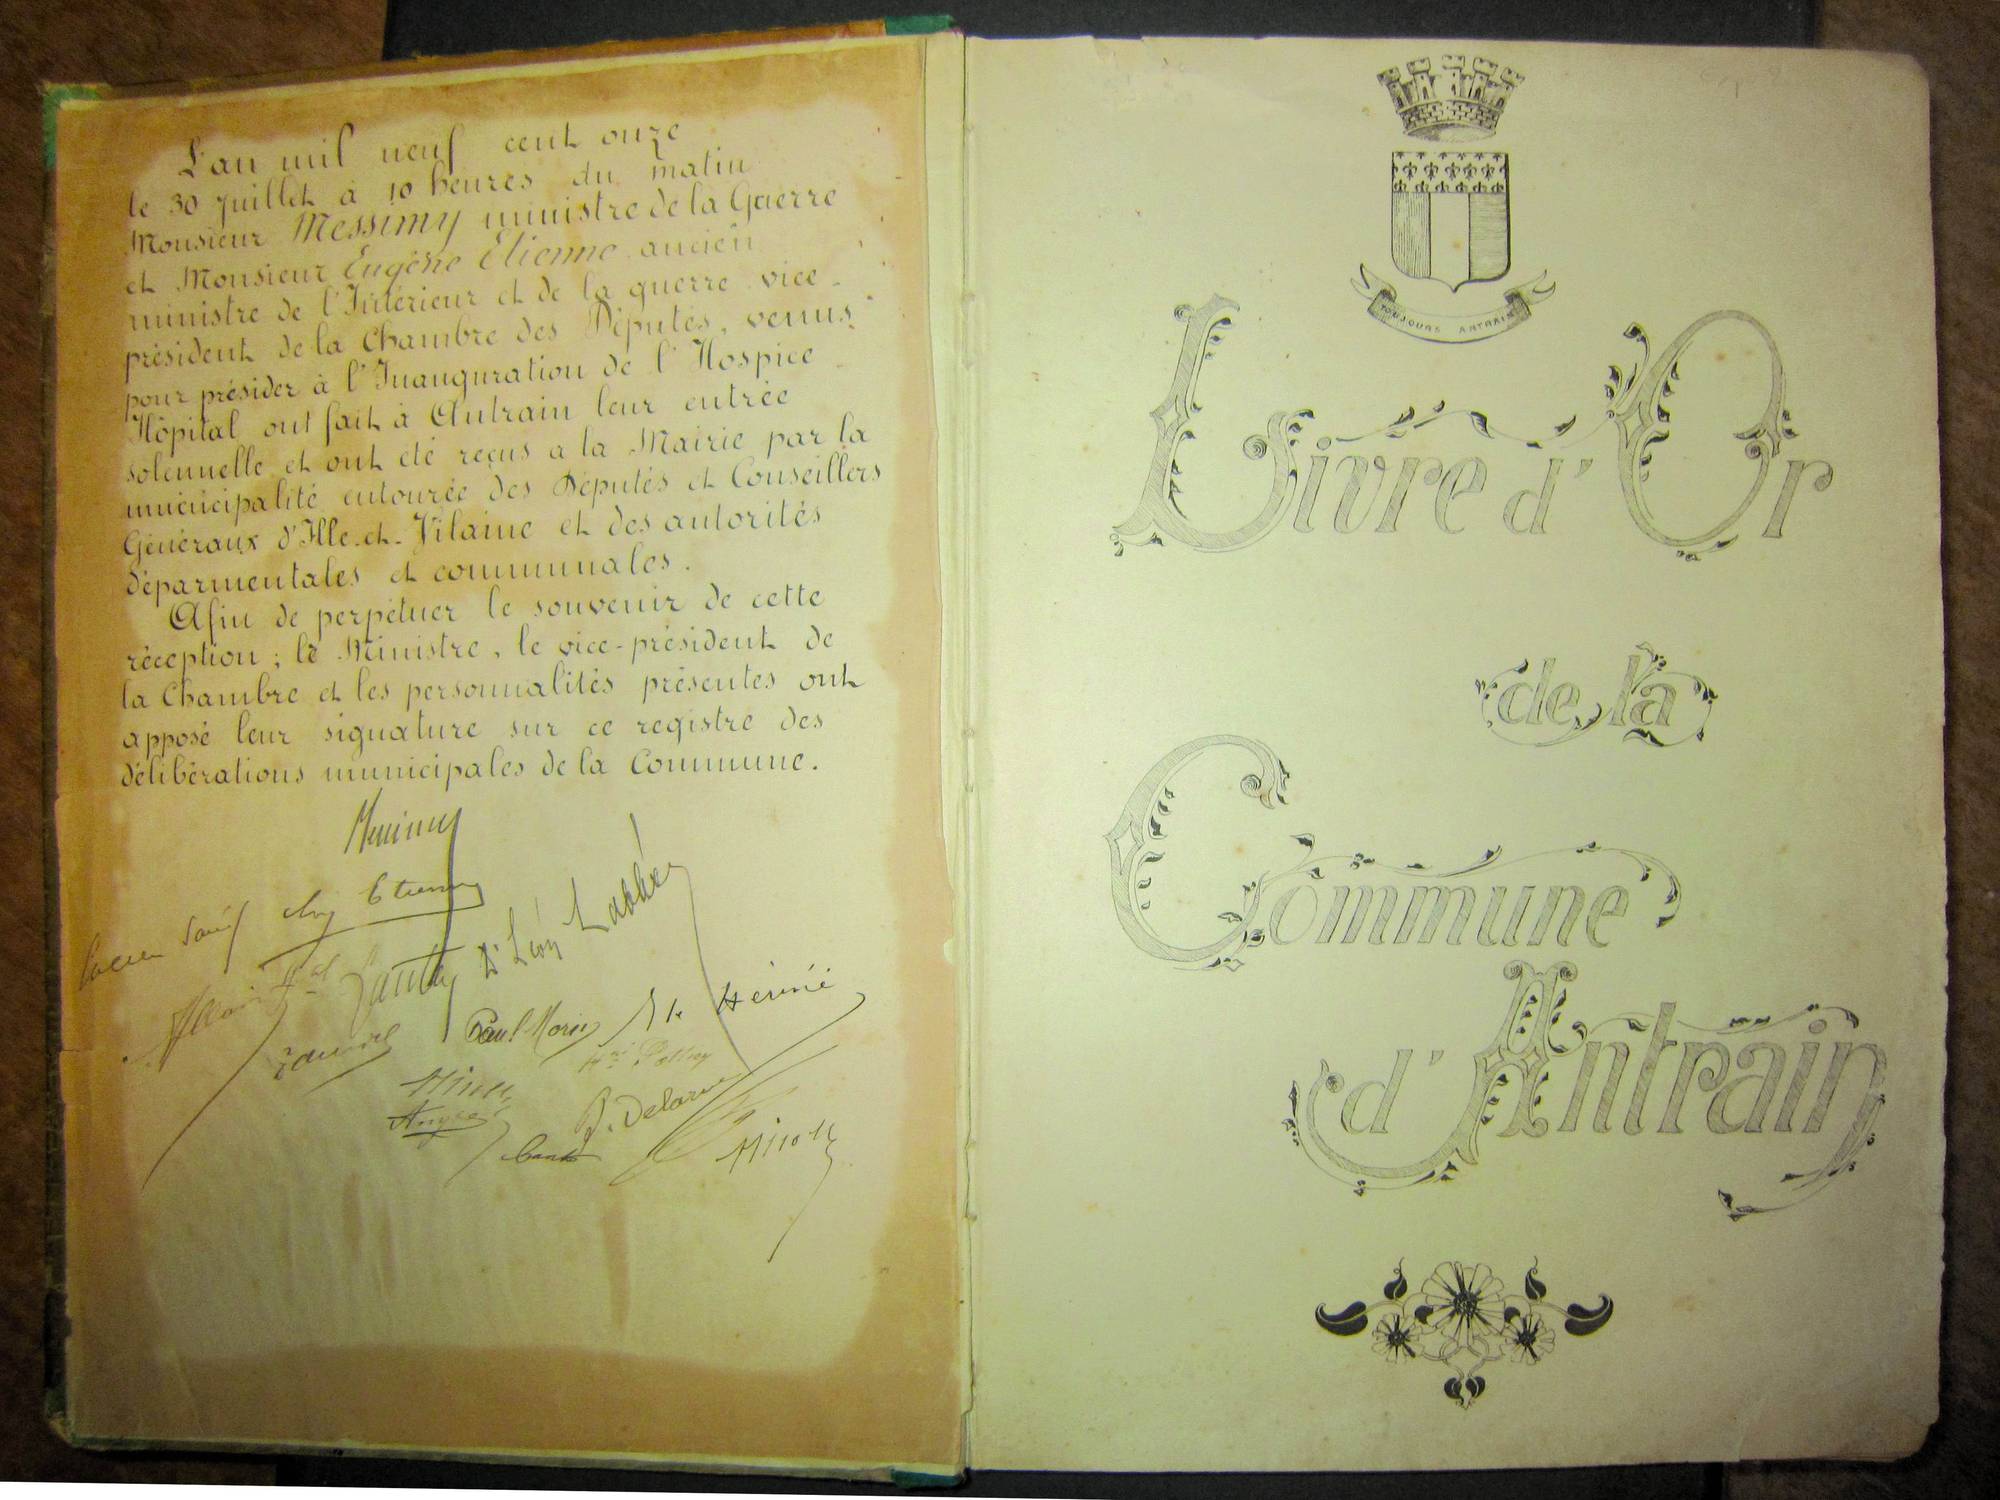 L'an mil neuf cent onze
le 30 Juillet à 10 heures du matin
Monsieur Messimy ministre de la Guerre
et Monsieur Eugène Etienne ancien
ministre de l'Intérieur et de la guerre vice-
président de la Chambre des Députés, venus
pour présider à l'Inauguration de l'Hospice
Hôpital ont fait à Antrain leur entrée
solennelle et ont été reçus a la Mairie par la
municipalité entourée des Députés et Conseillers
Généraux d'Ille-et-Vilaine et des autorités
déparmentales et communales.
Afin de perpétuer le souvenir de cette
réception ; le Ministre, le vice-président de
la Chambre et les personnalités présentes ont
apposé leur signature sur ce registre des
délibérations municipales de la Commune.
Messimy
Etienne
Dr Léon Labbé
Paul Morin
Le Hérissé
P. Delarue
TOUJOURS ANTRAIN
Livre d'Or
de la
Commune
d'Antrain